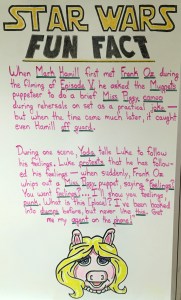 STAR WARS
FUN FACT
When Mark Hamill first met Frank Oz during
the filming of Episode V, he asked the Muppets
puppeteer to do a brief Miss Piggy cameo
during rehearsals on set as a practical joke —
but when the time came much later, it caught
even Hamill off guard.
During one scene, Yoda tells Luke to follow
his feelings. Luke protests that he has follow-
ed his feelings — when suddenly, Frank Oz
whips out a Miss Piggy puppet, saying "Feelings?
You want feelings? I will show you feelings,
punk. What is this place? I've been booked
into dumps before, but never like this. Get
me my agent on the phone!"